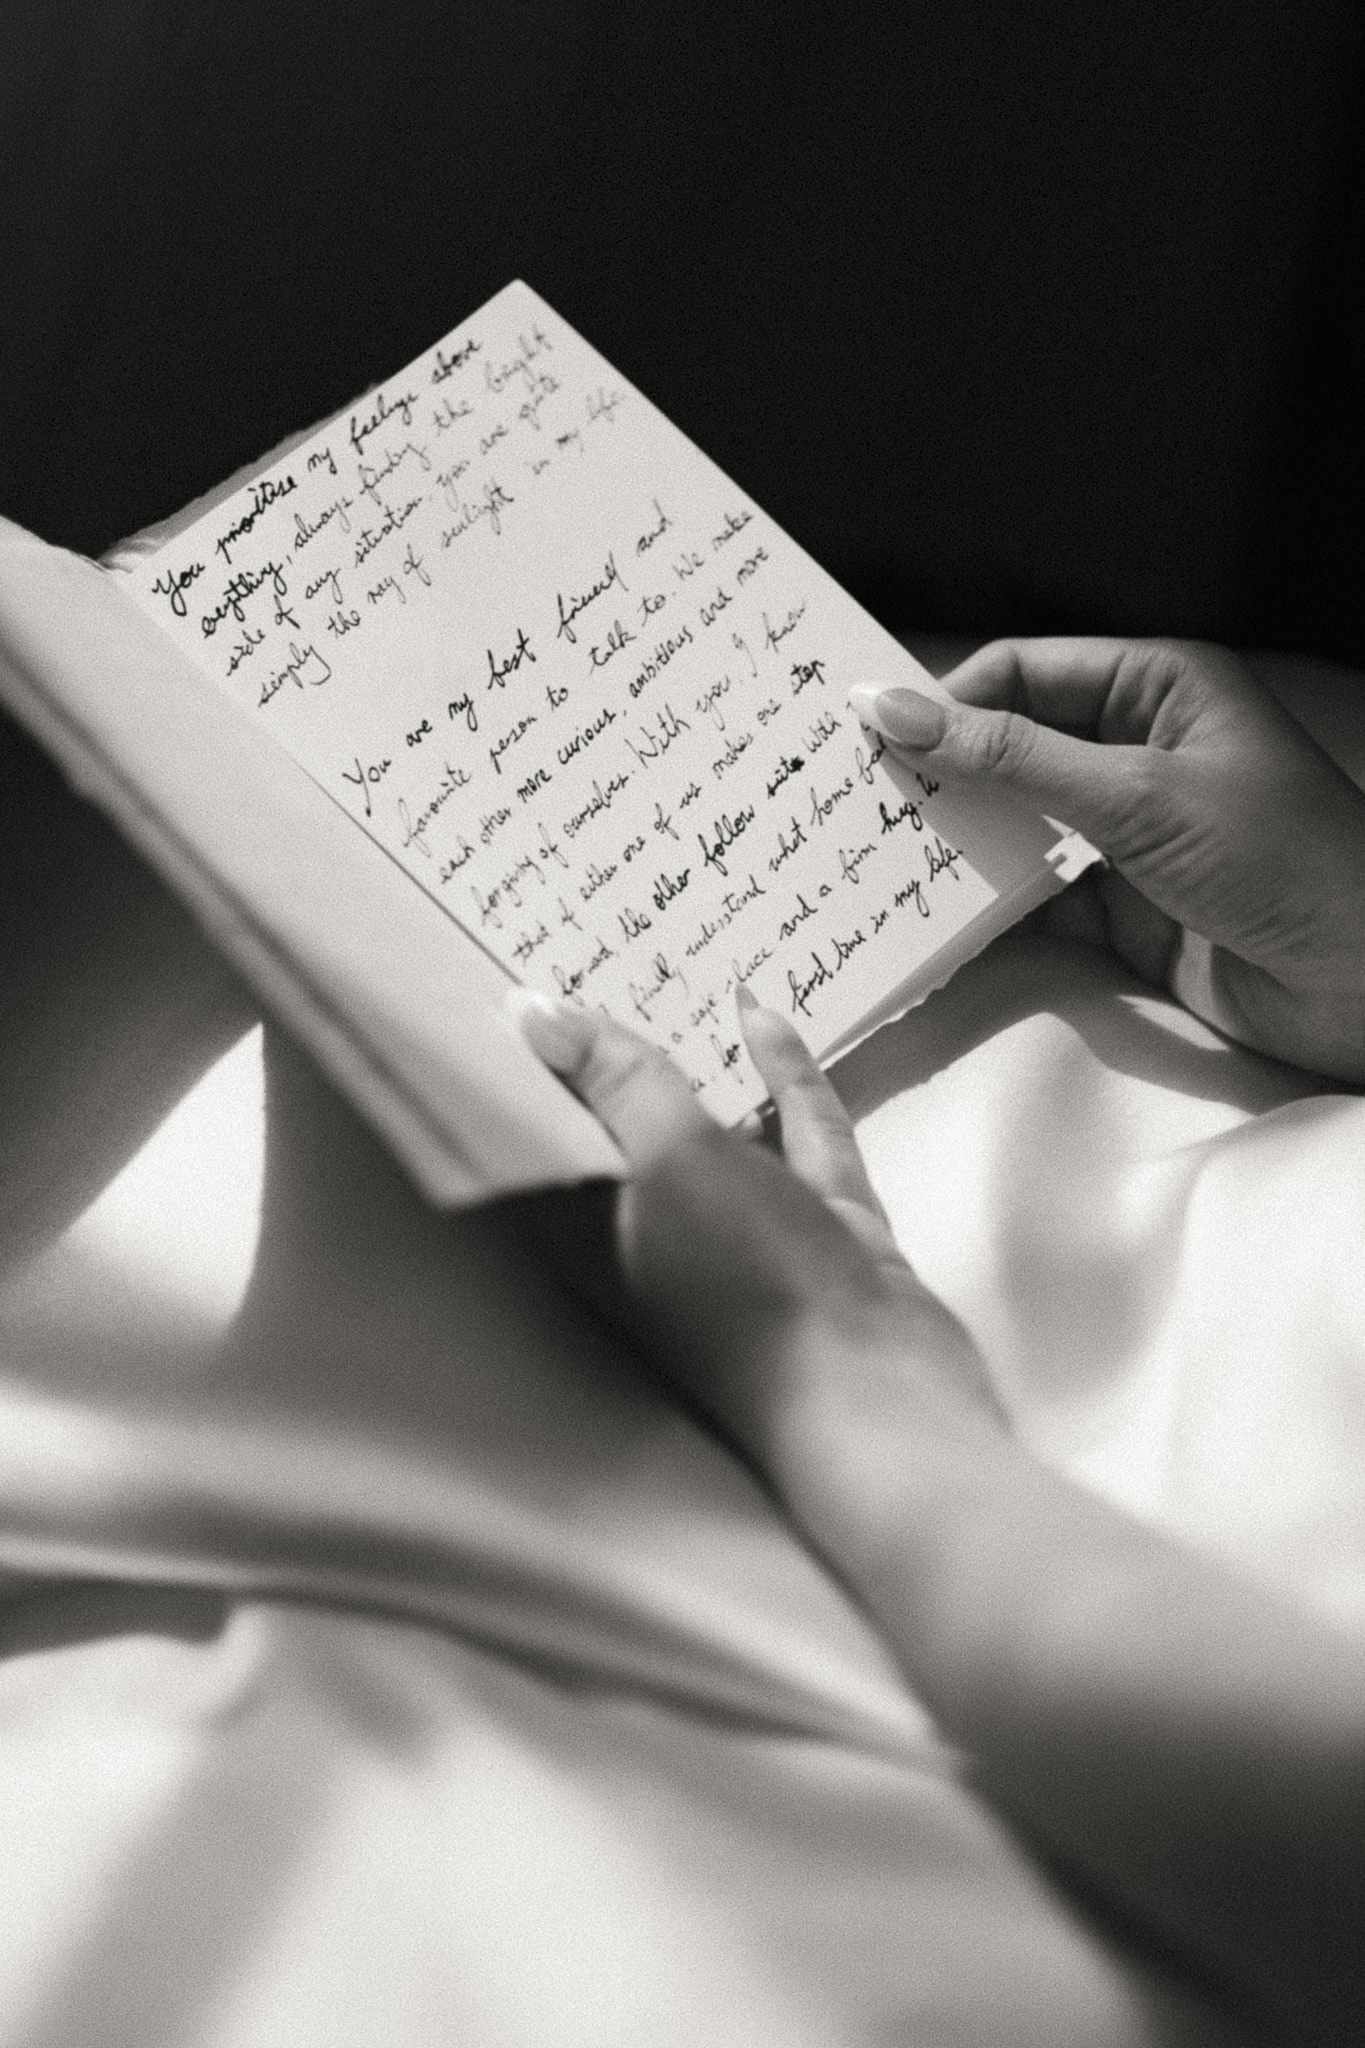 You prioritise my feelings above
everything, always finding the bright
side of any situation. you are quite
simply the ray of sunlight in my life.
You are my best friend and
favourite person to talk to. We make
each other more curious, ambitious and more
forgiving of ourselves. With you, I know
that if either one of us makes one step
forward, the other follow suit. With
I finally understand what home
a safe place and a firm hug.
for first time in my life.